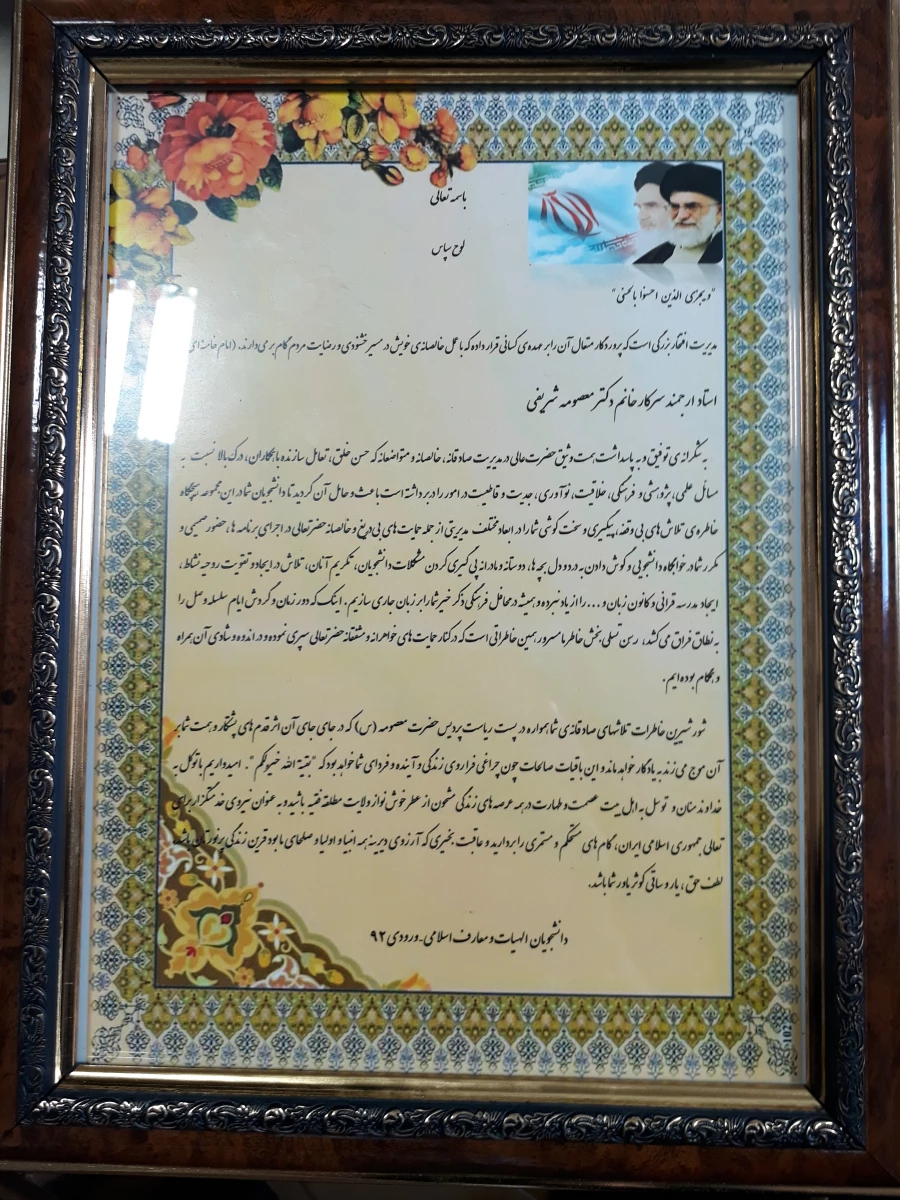 باسمه تعالی
لوح سپاس
"ویجزی الذین احسنوا بالحسنی"
مدیریت افتخار بزرگی است که پروردگار متعال آن را بر عهده‌ی کسانی قرار داده که با عمل خالصانه‌ی خویش در مسیر خشنودی و رضایت مردم گام برمی‌دارند. (امام خامنه‌ای
استاد ارجمند سرکار خانم دکتر معصومه شریفی
به شکرانه‌ی توفیق و به پاسداشت همت وثیق حضرت‌عالی در مدیریت صادقانه، خالصانه و متواضعانه که حسن خلق، تعامل سازنده با همکاران، درک بالا نسبت به
مسائل علمی، پژوهشی و فرهنگی، خلاقیت، نوآوری، جدیت و قاطعیت در امور را در بر داشته است باعث و حامل آن گردید تا دانشجویان شما در این مجموعه هیچگاه
خاطره‌ی تلاش های بی وقفه، پیگیری و سخت کوشی شما را در ابعاد مختلف مدیریتی از جمله حمایت های بی دریغ و خالصانه حضرتعالی در اجرای برنامه ها، حضور صمیمی و
مکرر شما در خوابگاه دانشجویی و گوش دادن به درد و دل بچه ها، دوستانه و مادرانه پی گیری کردن مشکلات دانشجویان، تکریم آنان، تلاش در ایجاد و تقویت روحیه نشاط،
ایجاد مدرسه قرآنی و کانون زبان و ... را از یاد نبرده و همیشه در محافل فرهنگی ذکر خیر شما را بر زبان جاری سازیم. اینک که دور زمان و گردش ایام سلسله وصل را
به نطاق فراق می کشد، رسن تسلی بخش خاطر ما مسرور همین خاطراتی است که در کنار حمایت های خواهرانه و مشفقانه حضرتعالی سپری نموده و در اندوه و شادی آن همراه
و همگام بوده ایم.
شور شیرین خاطرات تلاشهای صادقانه‌ی شما همواره در پست ریاست پردیس حضرت معصومه (س) که در جای جای آن اثر قدم های پشتکار و همت شما بر
آن موج می زند به یادگار خواهد ماند و این باقیات صالحات چون چراغی فراروی زندگی و آینده و فردای شما خواهد بود که "بقیة الله خیر لکم". امیدواریم با توکل به
خداوند منان و توسل به اهل بیت عصمت و طهارت در همه عرصه های زندگی مشحون از عطر خوش نواز ولایت مطلقه فقیه باشید و به عنوان نیروی خدمتگزار برای
تعالی جمهوری اسلامی ایران، گام های مستحکم و مستمری را بردارید و عاقبت بخیری که آرزوی دیرینه همه انبیاء و اولیا و صلحای ما بود قرین زندگی پرنورتان باشد.
لطف حق، یار و ساقی کوثر یاور شما باشد.
دانشجویان الهیات و معارف اسلامی-ورودی ۹۲